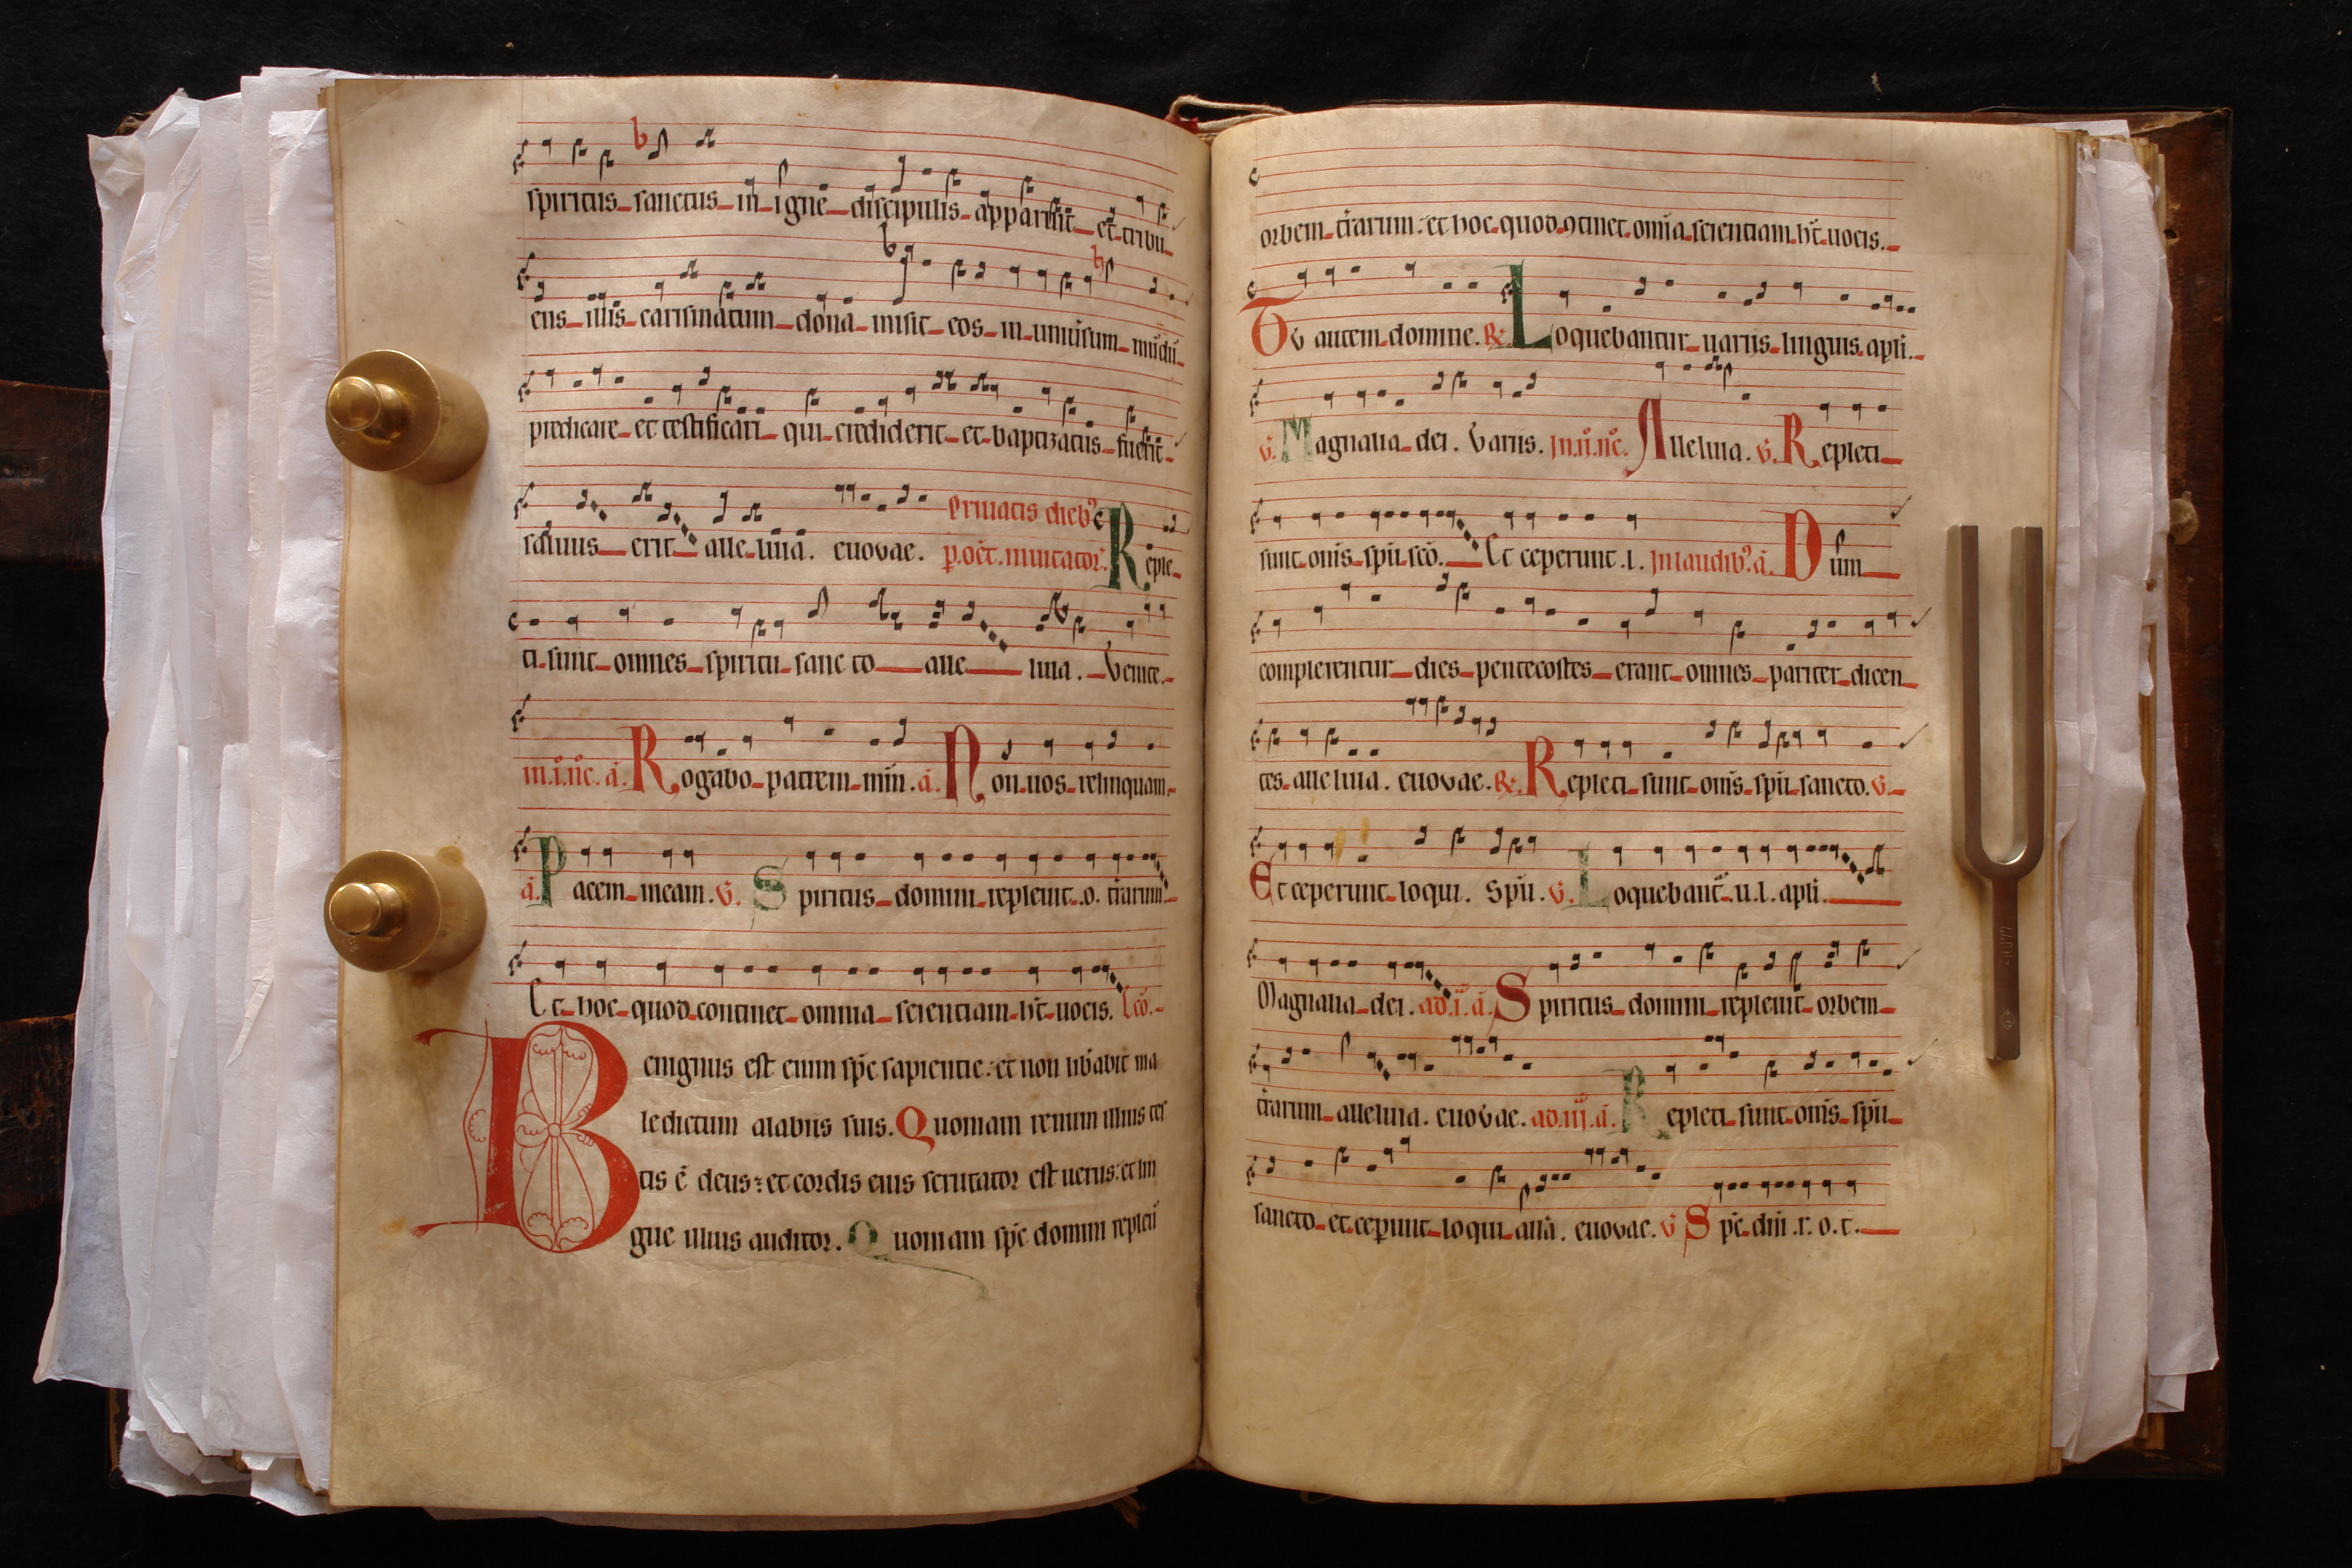 spiritus sanctus in igne discipulis apparuit et tribu
ens illis carismatum dona misit eos in uniũsum mũdũ
predicare et testificari qui crediderit et baptizatus fuerit
saluus erit alleluia. euovae.
Priuatis dieb9
p. oct. inuitator. Reple
ti sunt omnes spiritu sancto alleluia. Venite.
in.i.nc. a. Rogabo patrem mm. a. Non uos relinquam
a. Pacem meam. V. Spiritus domini repleuit .o. t̄rarum
Et hoc quod continet omnia scientiam h̄t uocis. Lc̄o.
Benignus est enim sp̄c sapientie: et non lib̄abit ma
ledictum a labiis suis. Quoniam renum illius tes
tis ē deus: et cordis eius scrutator est uerus: et lin
gue illius auditor. Quoniam sp̄c domini repleu
orbem t̄rarum: et hoc quod 9tinet omīa scientiam h̄t uocis.
Tu autem domine. R. Loquebantur uariis linguis apłi.
V. Magnalia dei. Variis. in.ii.nc. Alleluia. V. Repleti
sunt om̄s spū sc̄o. Et ceperunt .l. In laudib9. a. Dum
complerentur dies pentecostes erant omnes pariter dicen
tes alleluia. euovae. R. Repleti sunt om̄s spū sancto. V.
Et ceperunt loqui. Spū. V. Loquebant̄ .u.l. apłi.
Magnalia dei. ad.i.a. Spiritus domini repleuit orbem
t̄rarum alleluia. euovae. ad.iii.a. Repleti sunt om̄s spū
sancto et cep̄unt loqui all̄a. euovae. V Sp̄c dn̄i .r.o.t.